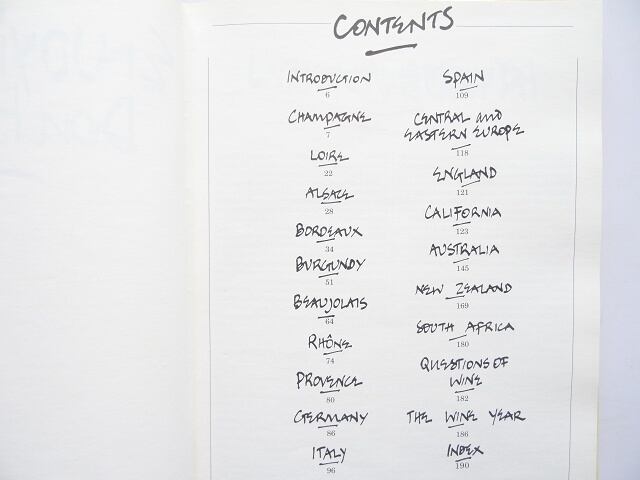 CONTENTS
INTRODUCTION
6
CHAMPAGNE
7
LOIRE
22
ALSACE
28
BORDEAUX
34
BURGUNDY
51
BEAUJOLAIS
64
RHÔNE
74
PROVENCE
80
GERMANY
86
ITALY
96
SPAIN
109
CENTRAL and
EASTERN EUROPE
118
ENGLAND
121
CALIFORNIA
123
AUSTRALIA
145
NEW ZEALAND
169
SOUTH AFRICA
180
QUESTIONS OF
WINE
182
THE WINE YEAR
186
INDEX
190